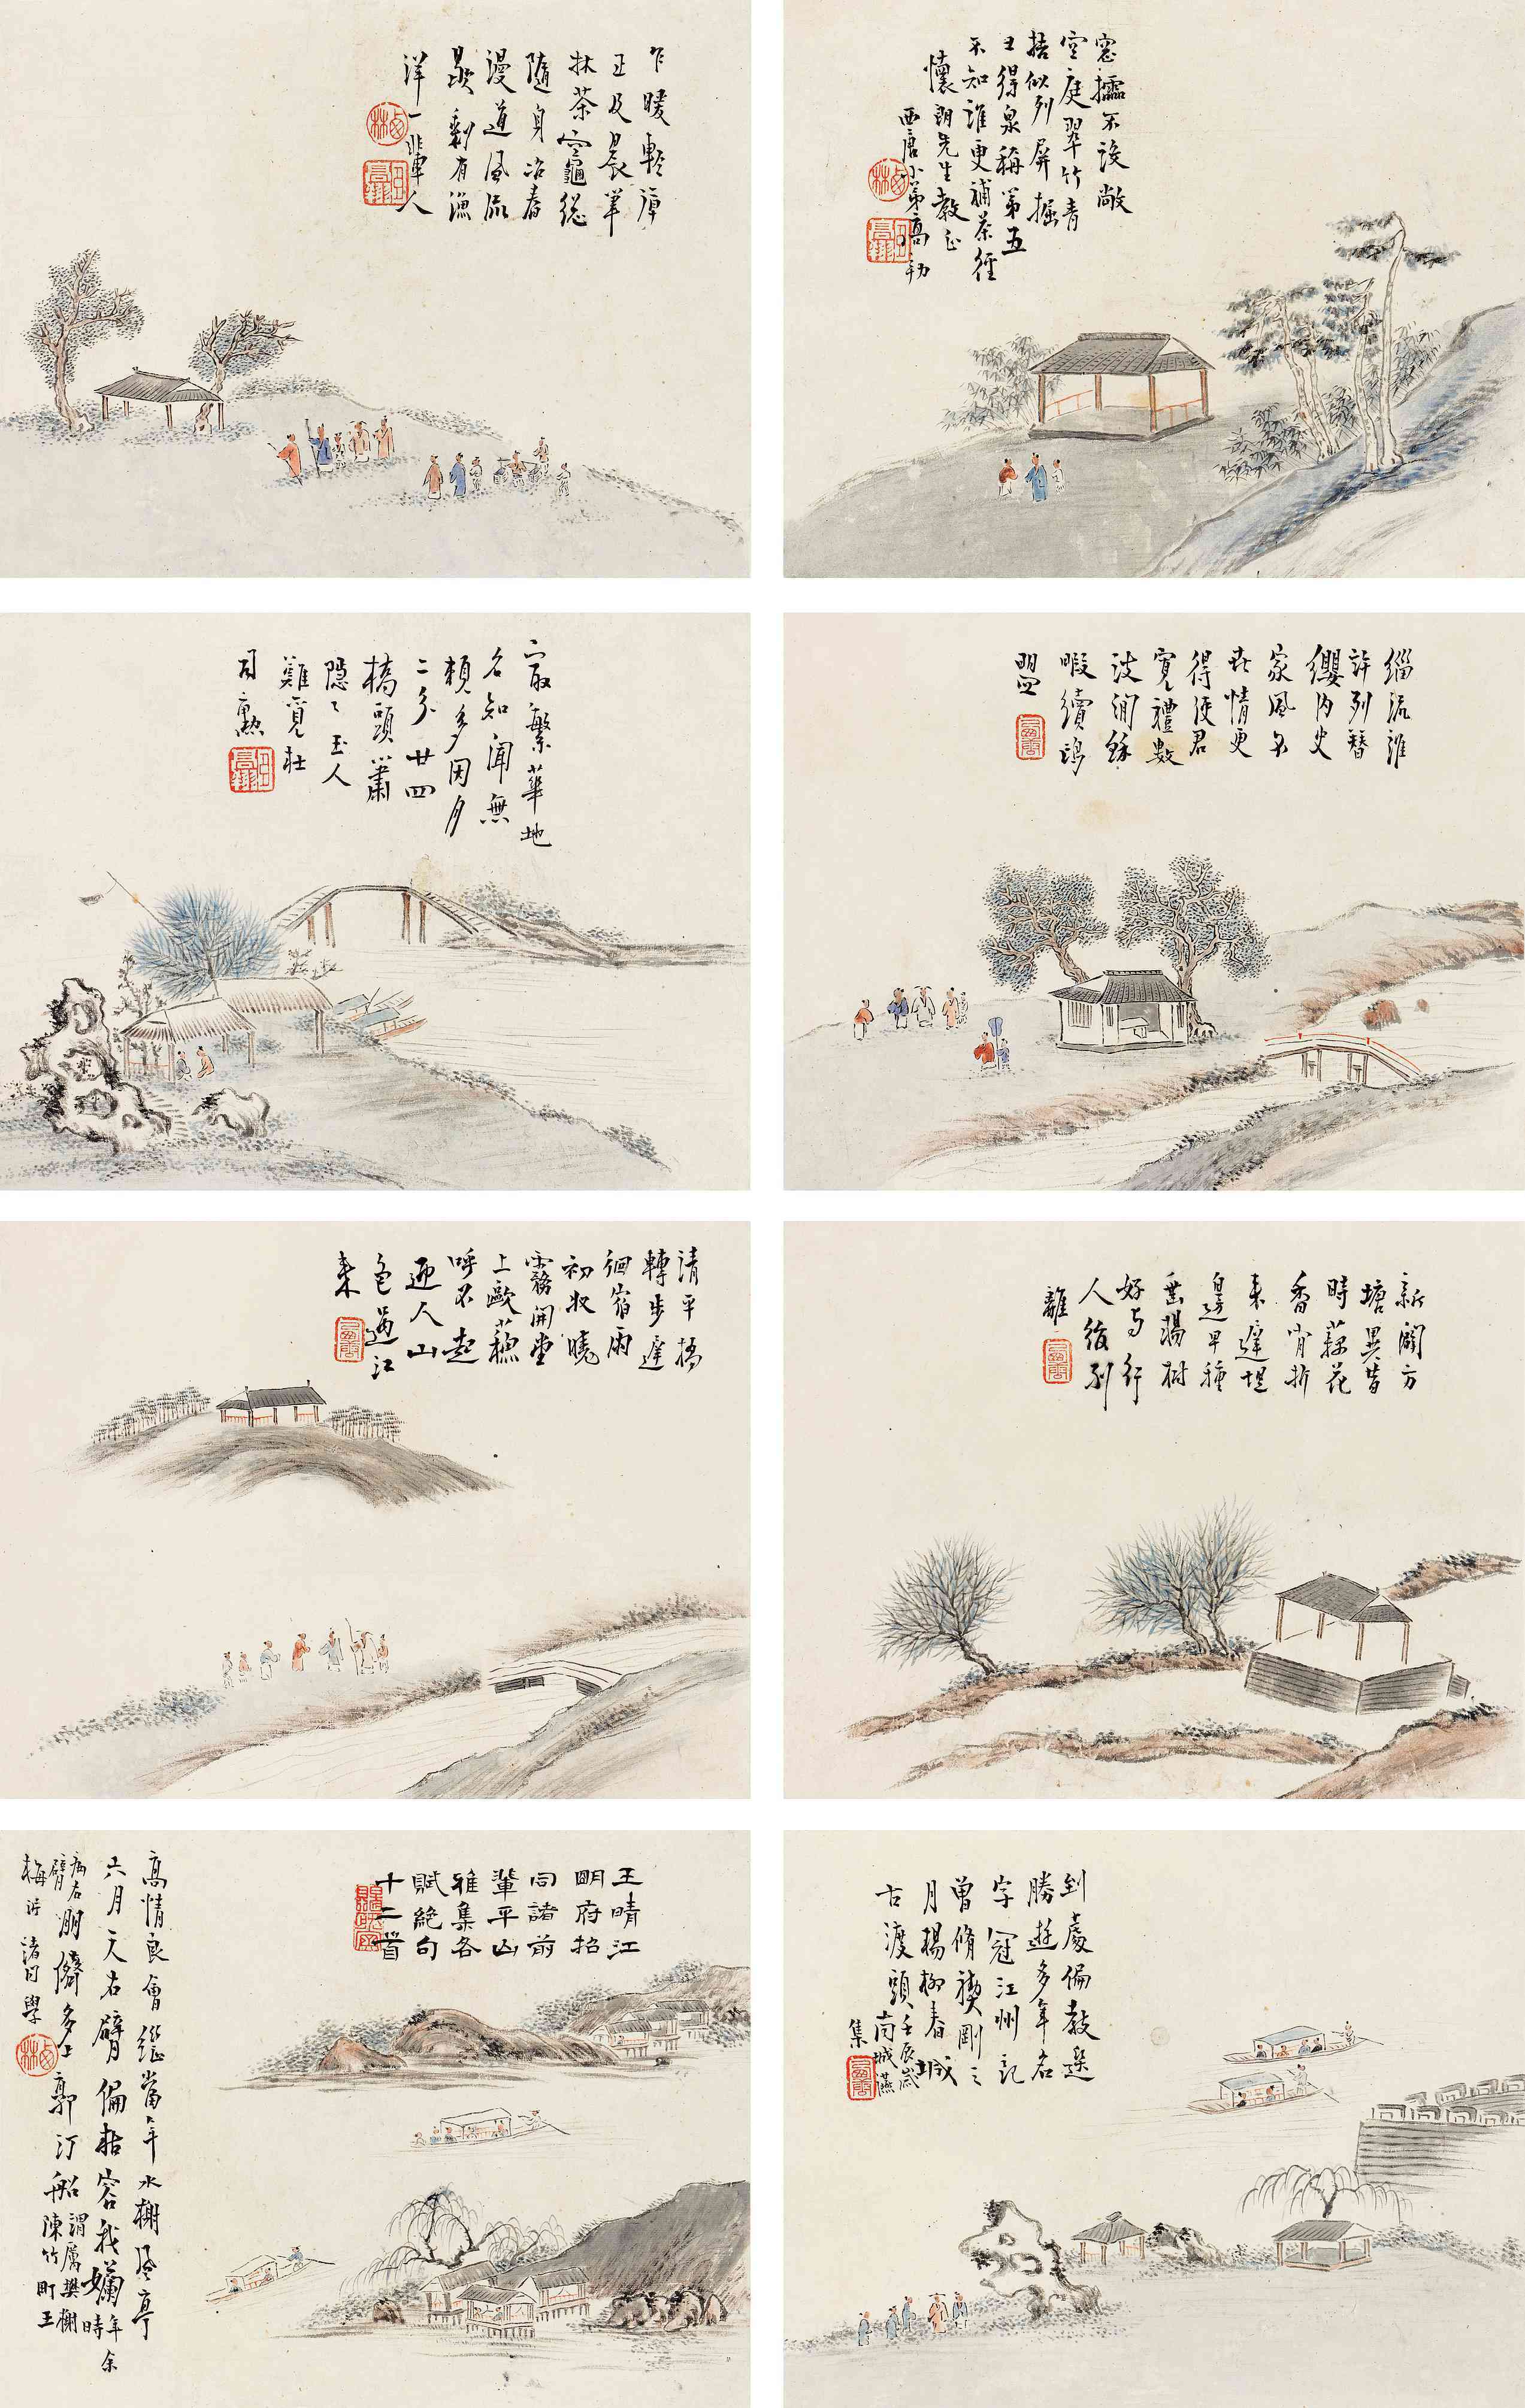 乍暖輕陰
正及晨筆
牀茶竈總
隨身冶春
漫道風流
歇剩有漁
洋一輩人
窓櫺不設敞
空庭翠竹青
梧似列屏掘
得泉稱第五
不知誰更補茶經
懷朗先生教正
西唐小弟高翔
最繁華地
名知聞無
賴多因月
二分廿四
橋頭簫
隱々玉人
難覓杜
司勳
緇流誰
許列簪
纓內史
家風
情更
得使君
寬禮數
波間
暇續鷗
盟
請平橋
轉步遲
徊宿雨
初收曉
霧開堂
上歐蘇
呼不起
迎人山
色過江
來
新闢方
塘異昔
時藕花
香肯折
來遲堤
邊早種
垂楊樹
好與行
人綰別
離
王晴江
明府招
同諸前
輩平山
雅集各
賦絕句
十二首
高情良會繼當年水榭風亭
六月天右臂偏枯容我嬾時年余
病右臂朋儕多上郭汀船謂厲樊榭陳竹町王
梅沜諸同學
到處偏教選
勝遊多年名
字冠江州記
曾脩禊剛三
月楊柳春城
古渡頭壬辰歲
南城燕
集